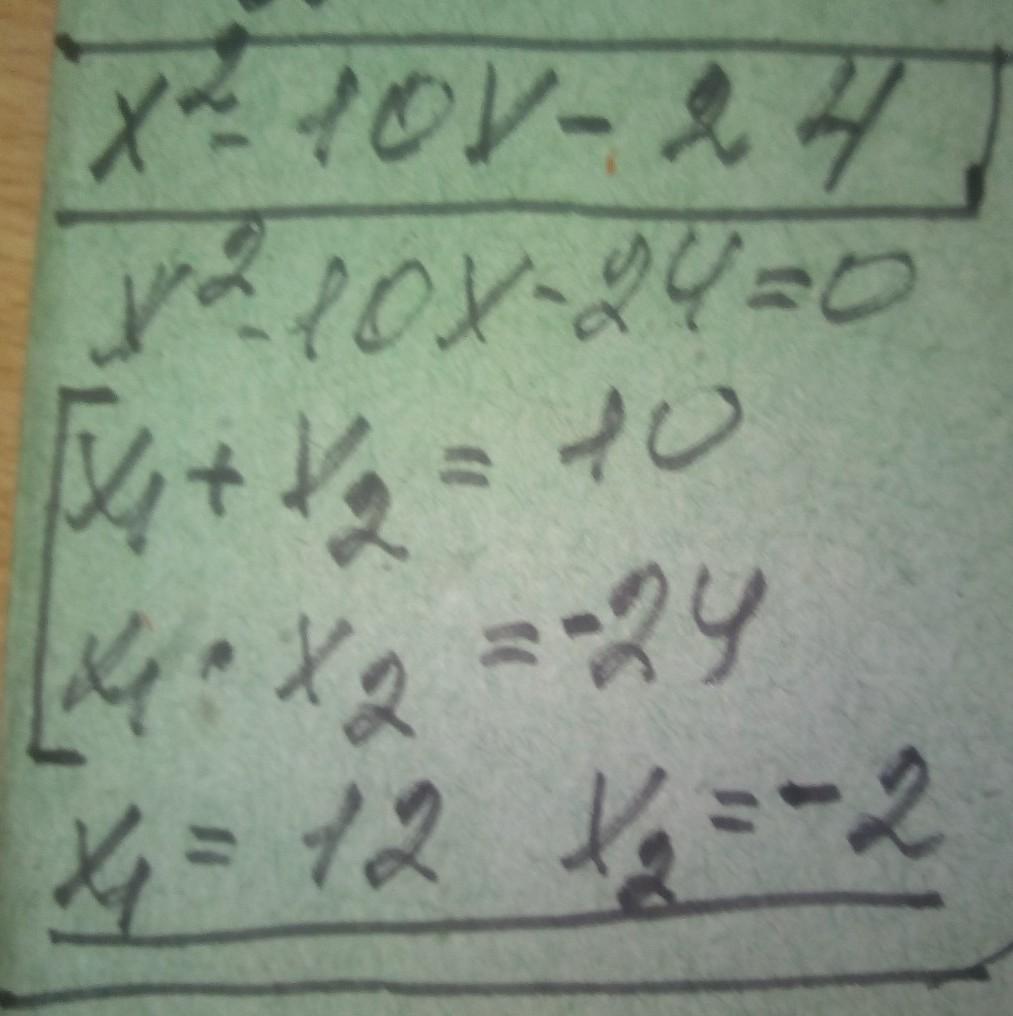 x² - 10x - 24
x² - 10x - 24 = 0
x₁ + x₂ = 10
x₁ · x₂ = -24
x₁ = 12 x₂ = -2